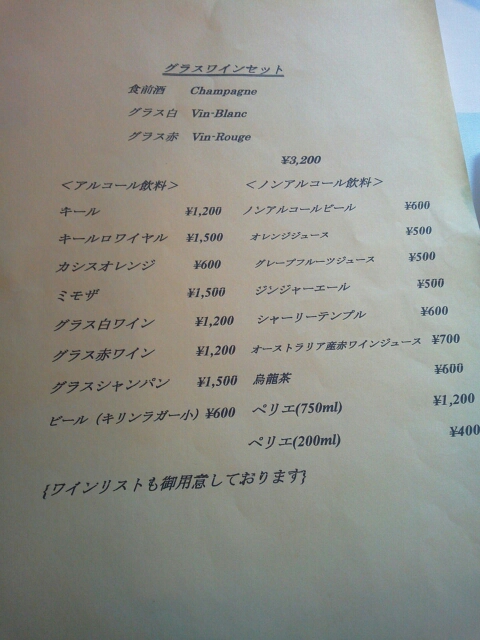 グラスワインセット
食前酒 Champagne
グラス白 Vin-Blanc
グラス赤 Vin-Rouge
¥3,200
＜アルコール飲料＞ ＜ノンアルコール飲料＞
キール ¥1,200 ノンアルコールビール ¥600
キールロワイヤル ¥1,500 オレンジジュース ¥500
カシスオレンジ ¥600 グレープフルーツジュース ¥500
ミモザ ¥1,500 ジンジャーエール ¥500
グラス白ワイン ¥1,200 シャーリーテンプル ¥600
グラス赤ワイン ¥1,200 オーストラリア産赤ワインジュース ¥700
グラスシャンパン ¥1,500 烏龍茶 ¥600
ビール（キリンラガー小）¥600 ペリエ(750ml) ¥1,200
ペリエ(200ml) ¥400
{ワインリストも御用意しております}